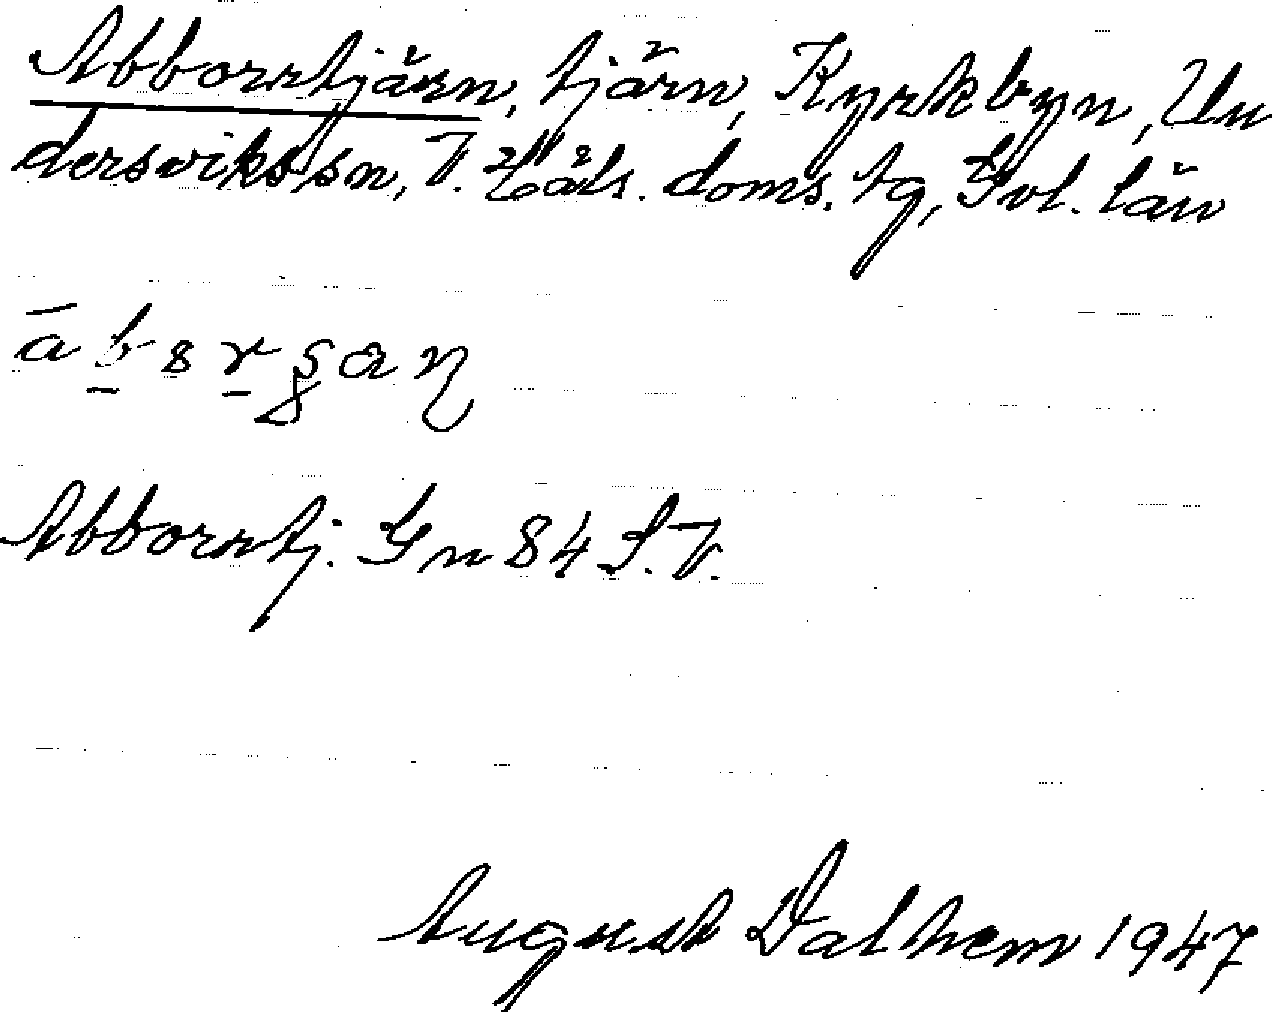 Abborrtjärn, tjärn, Kyrkbyn, Un
dersviks sn, V. Häls. doms. tg, Gvl. län
Abborrtj. Gn 84 S.V.
August Dalhem 1947